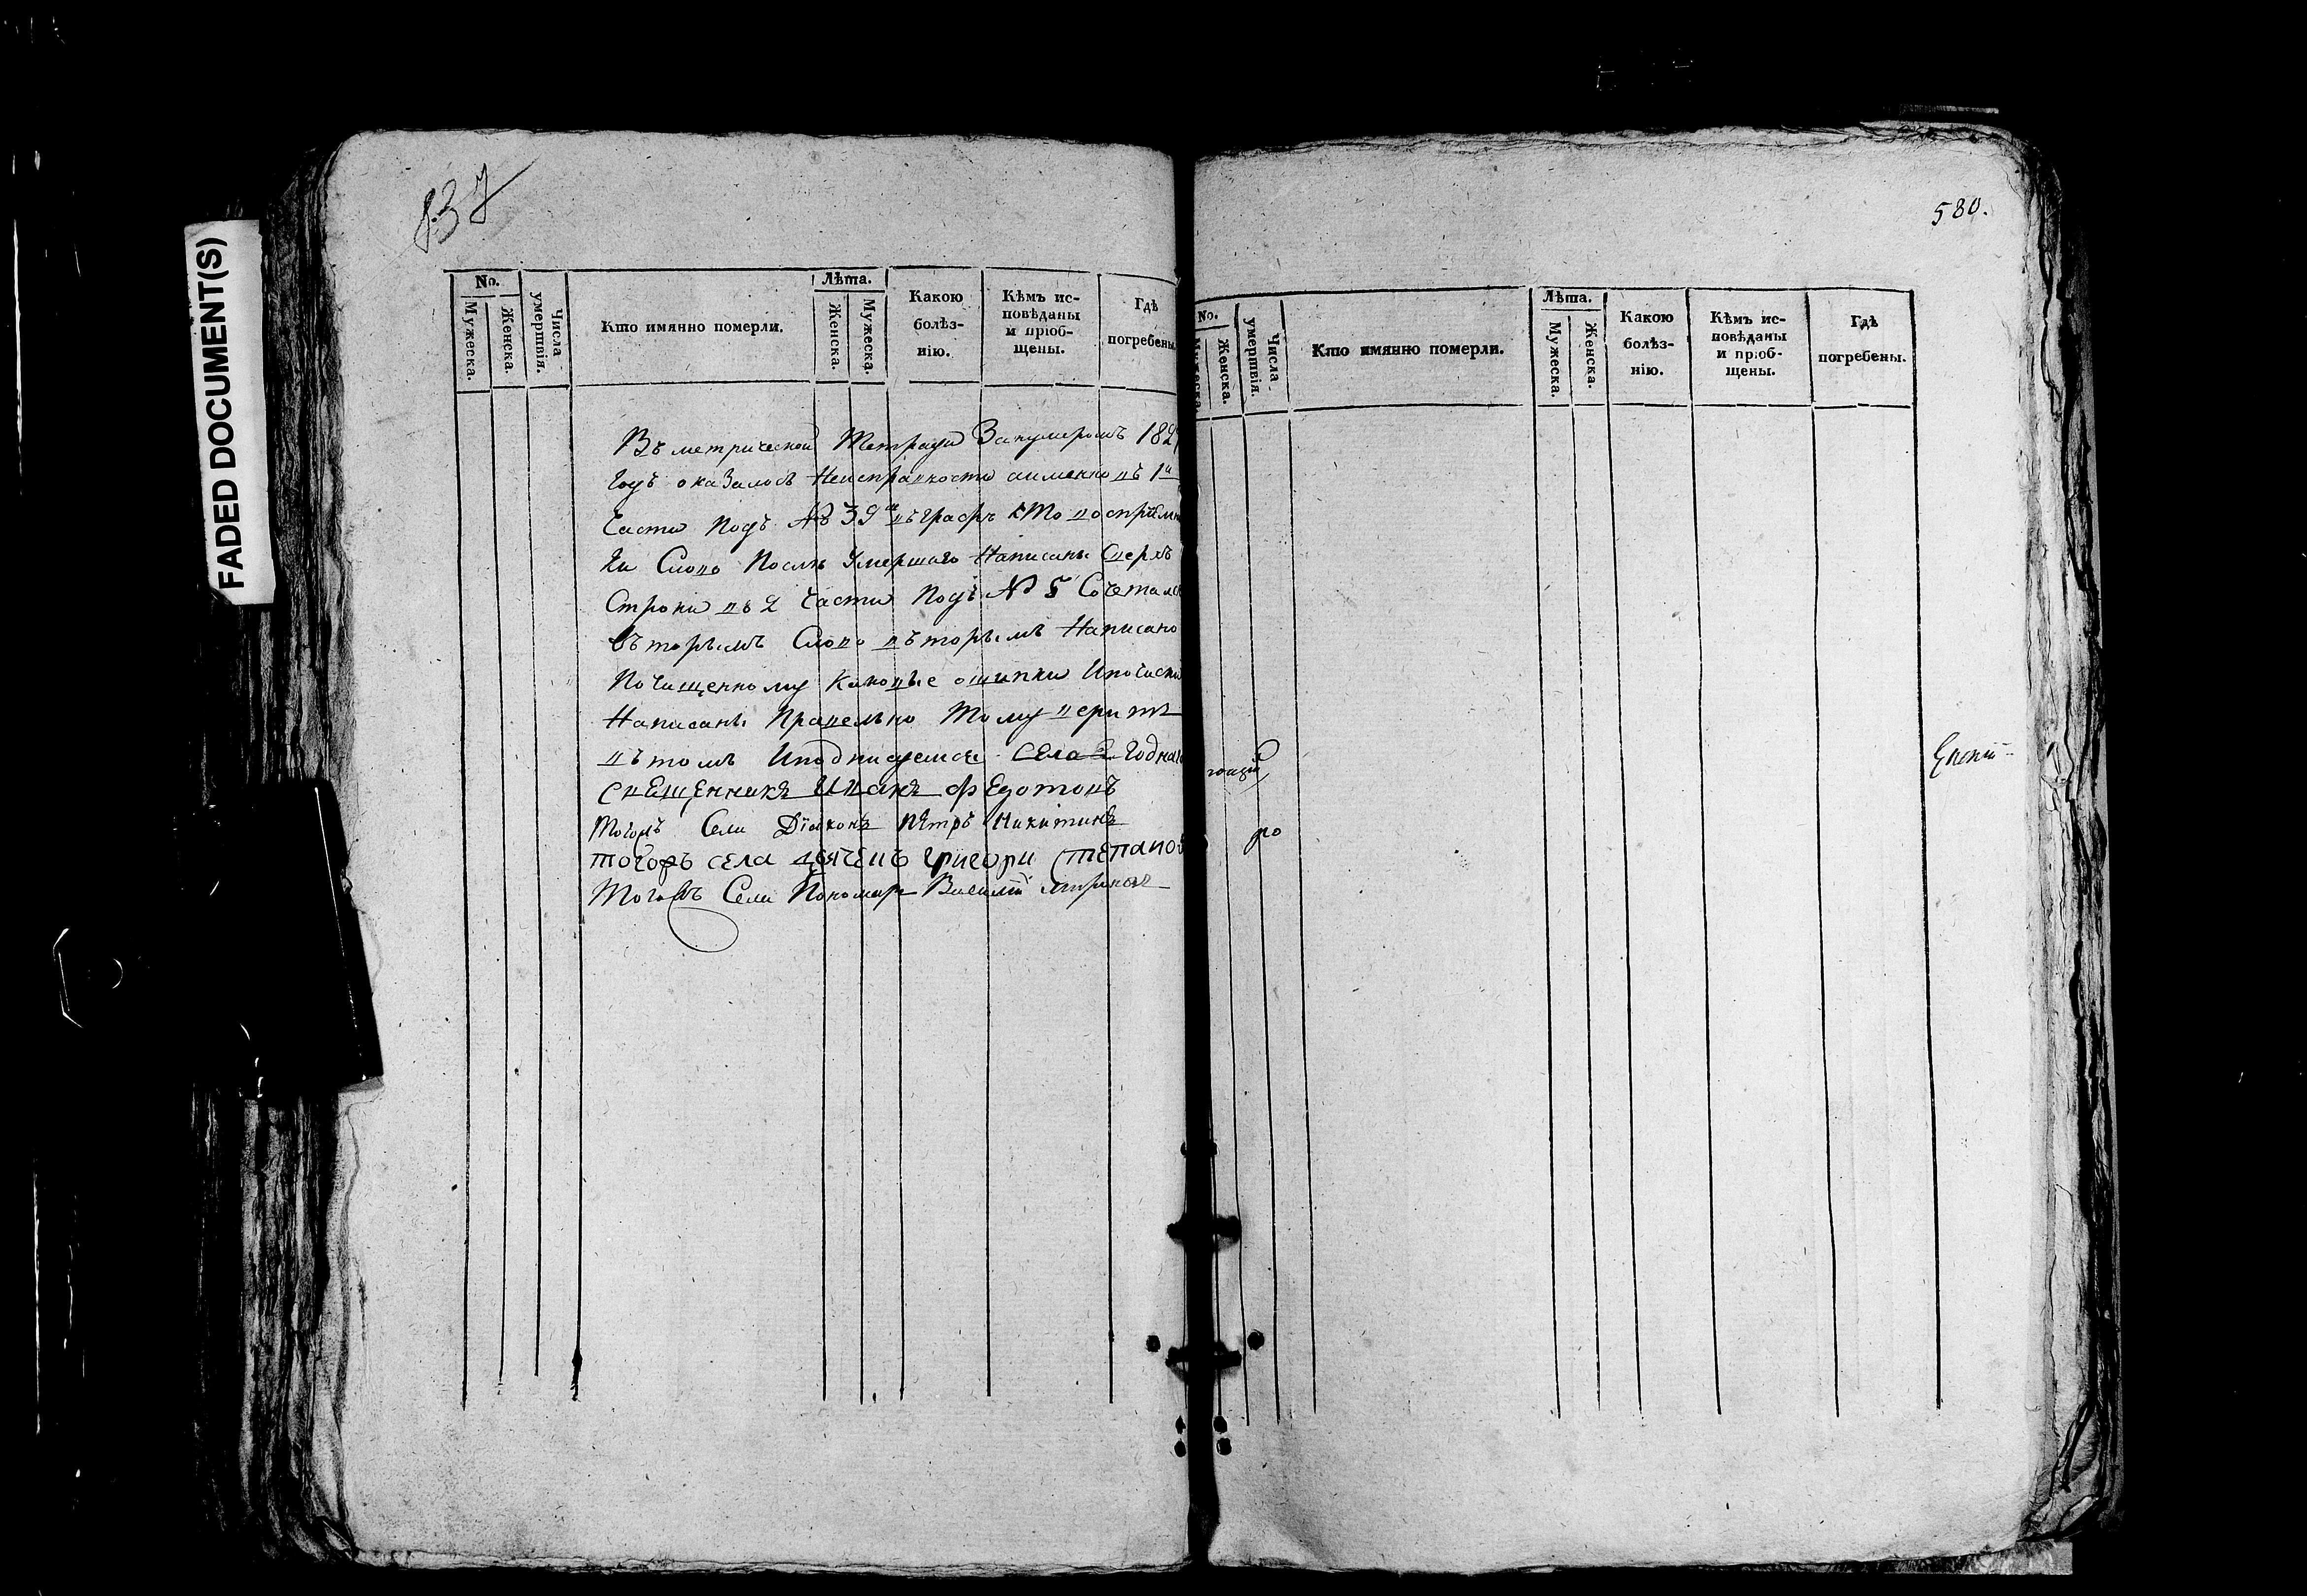 FADED DOCUMENT(S)
837
No.
Мужеска.
Женска.
Числа умертвія.
Кто имянно померли.
Лѣта.
Женска.
Мужеска.
Какою
болѣз-
нію.
Кѣмъ ис-
повѣданы
и пріоб-
щены.
Гдѣ
погребены.
Въ метрической тетради занумеромъ 182
годъ оказалось неисправности аименно въ 1й
части подъ № 39м въ графѣ кто
ки слово после умершаго написанъ сверхъ
строки въ 2 части подъ № 5
вторымъ слово вторымъ написано
почищенному каковые ошипки ипочистки
написанъ правельно тому верить
въ томъ иподписуемся села
свещенникъ Иванъ Федотовъ
тогожъ села Діаконъ Пѣтръ Никитинъ
тогожъ села дячекъ григори степано
тогожъ села Пономарь Василій
580.
No.
Мужеска.
Женска.
Числа умертвія.
Кто имянно померли.
Лѣта.
Мужеска.
Женска.
Какою
болѣз-
нію.
Кѣмъ ис-
повѣданы
и пріоб-
щены.
Гдѣ
погребены.
ро